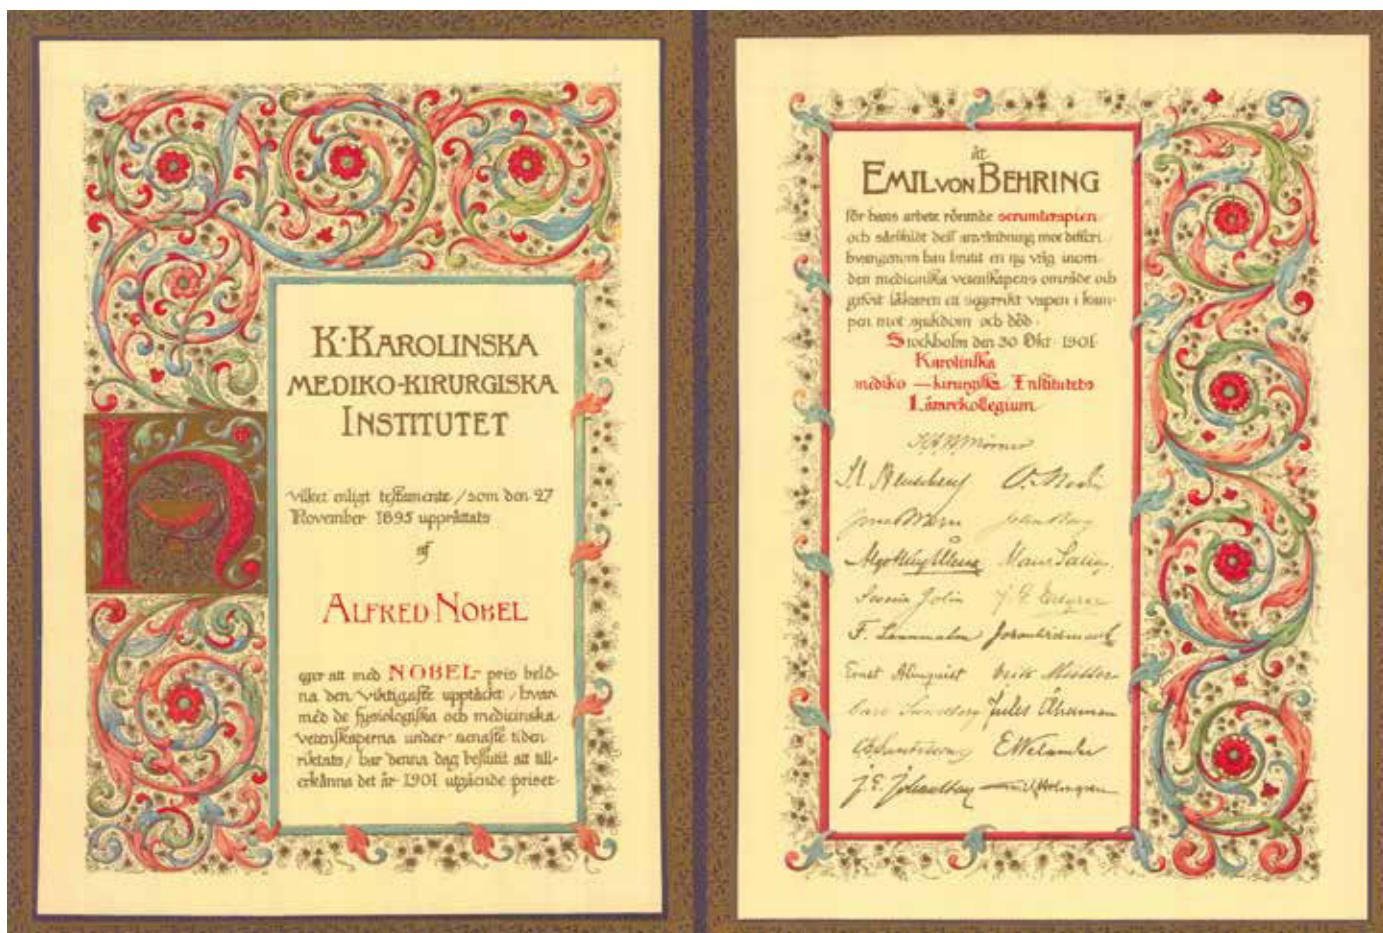 K·KAROLINSKA
MEDIKO-KIRURGISKA
INSTITUTET
vilket enligt testamente / som den 27
November 1895 upprättats
af
ALFRED NOBEL
eger att med NOBEL- pris belö-
na den viktigaste upptäckt / hvar
med de fysiologiska och medicinska
vetenskaperna under senaste tiden
riktats / har denna dag beslutit att till-
erkänna det år 1901 utgående priset
åt
EMIL VON BEHRING
för hans arbete rörande serumterapien
och särskildt dess användning mot difteri
hvarigenom han brutit en ny väg inom
den medicinska vetenskapens område och
gifvit läkaren ett segerrikt vapen i kam-
pen mot sjukdom och död·
Stockholm den 30 Okt· 1901·
Karolinska
mediko — kirurgiska Institutets
Lärarekollegium
Mörner
John Berg
Severin Jolin
F. Lennmalm
Ernst Almquist Erik Müller
Carl Sundberg Jules Åkerman
E Welander
J. E. Johansson Emil Holmgren